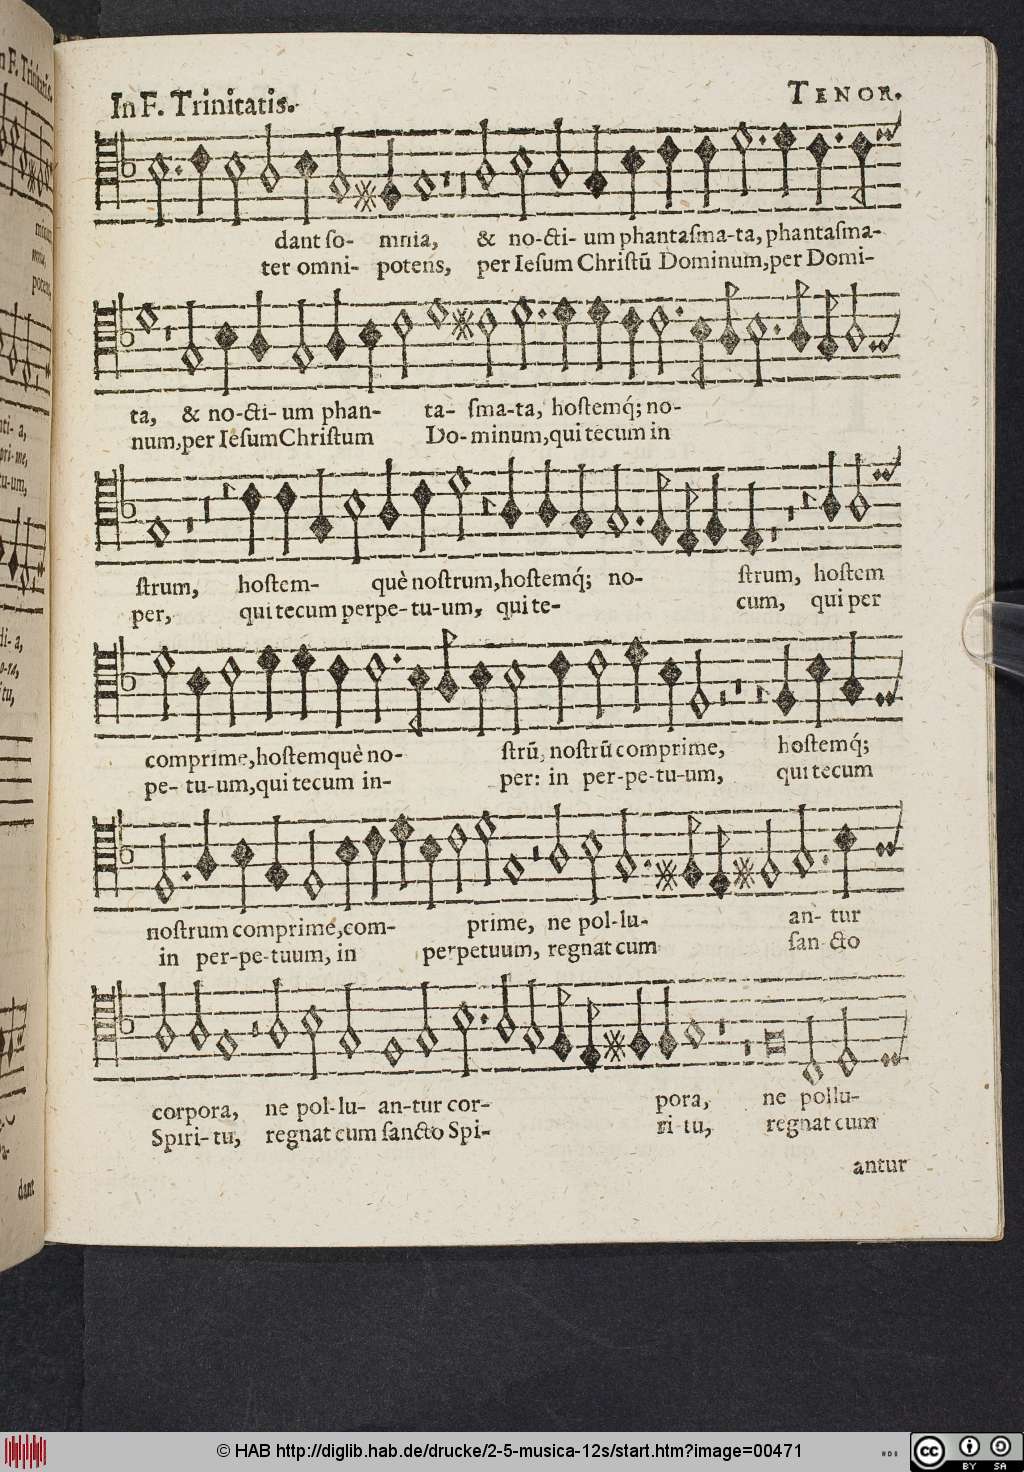 In F. Trinitatis.
TENOR.
dant ſo- mnia, & no-cti- um phantaſma-ta, phantaſma-
ter omni- potens, per Ieſum Chriſtū Dominum,per Domi-
ta, & no-cti- um phan- ta- ſma-ta, hoſtemq́; no-
num,per Ieſum Chriſtum Do- minum,qui tecum in
ſtrum, hoſtem- què noſtrum,hoſtemq́; no- ſtrum, hoſtem
per, qui tecum perpe-tu-um, qui te- cum, qui per
comprime,hoſtemquè no- ſtrū, noſtrū comprime, hoſtemq́;
pe- tu-um,qui tecum in- per: in per-pe-tu-um, qui tecum
noſtrum comprime,com- prime, ne pol-lu- an- tur
in per-pe-tuum, in perpetuum, regnat cum ſan-cto
corpora, ne pol-lu- an-tur cor- pora, ne pollu-
Spiri-tu, regnat cum ſancto Spi- ri-tu, regnat cum
antur
n F. Trinitatis.
potens,
nti- a,
pri-me,
tu-um,
di- a,
tu,
dant
© HAB http://diglib.hab.de/drucke/2-5-musica-12s/start.htm?image=00471
cc BY SA